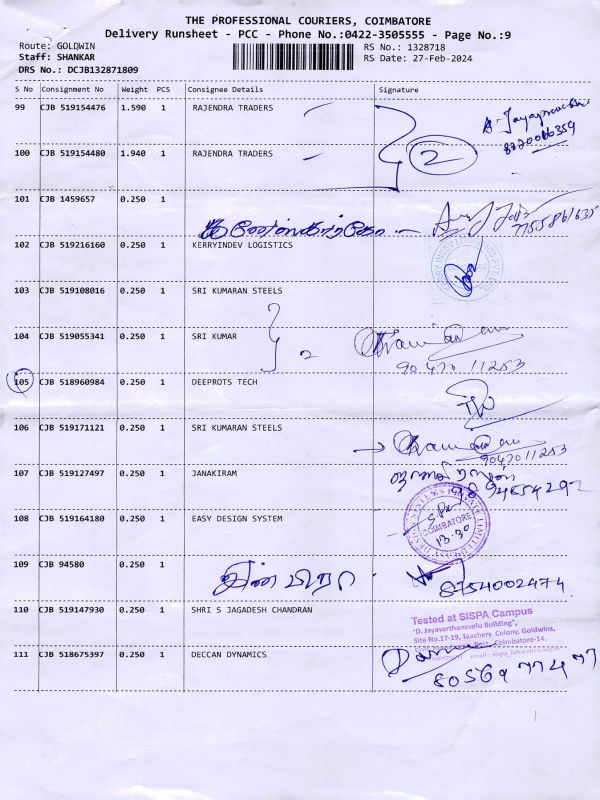 THE PROFESSIONAL COURIERS, COIMBATORE
Delivery Runsheet - PCC - Phone No.:0422-3505555 - Page No.:9
Route: GOLDWIN RS No.: 1328718
Staff: SHANKAR RS Date: 27-Feb-2024
DRS No.: DCJB132871809
S No Consignment No Weight PCS Consignee Details Signature
99 CJB 519154476 1.590 1 RAJENDRA TRADERS
100 CJB 519154480 1.940 1 RAJENDRA TRADERS 2
101 CJB 1459657 0.250 1
102 CJB 519216160 0.250 1 KERRYINDEV LOGISTICS
103 CJB 519108016 0.250 1 SRI KUMARAN STEELS
104 CJB 519055341 0.250 1 SRI KUMAR 2
90470 11253
105 CJB 518960984 0.250 1 DEEPROTS TECH
106 CJB 519171121 0.250 1 SRI KUMARAN STEELS
9047011253
107 CJB 519127497 0.250 1 JANAKIRAM
108 CJB 519164180 0.250 1 EASY DESIGN SYSTEM COIMBATORE
13.30
109 CJB 94580 0.250 1 8754002474
110 CJB 519147930 0.250 1 SHRI S JAGADESH CHANDRAN
Tested at SISPA Campus
"D. Jayavarthanavelu Building",
Site No.17-19, Teachers Colony, Goldwins,
111 CJB 518675397 0.250 1 DECCAN DYNAMICS
8056977477